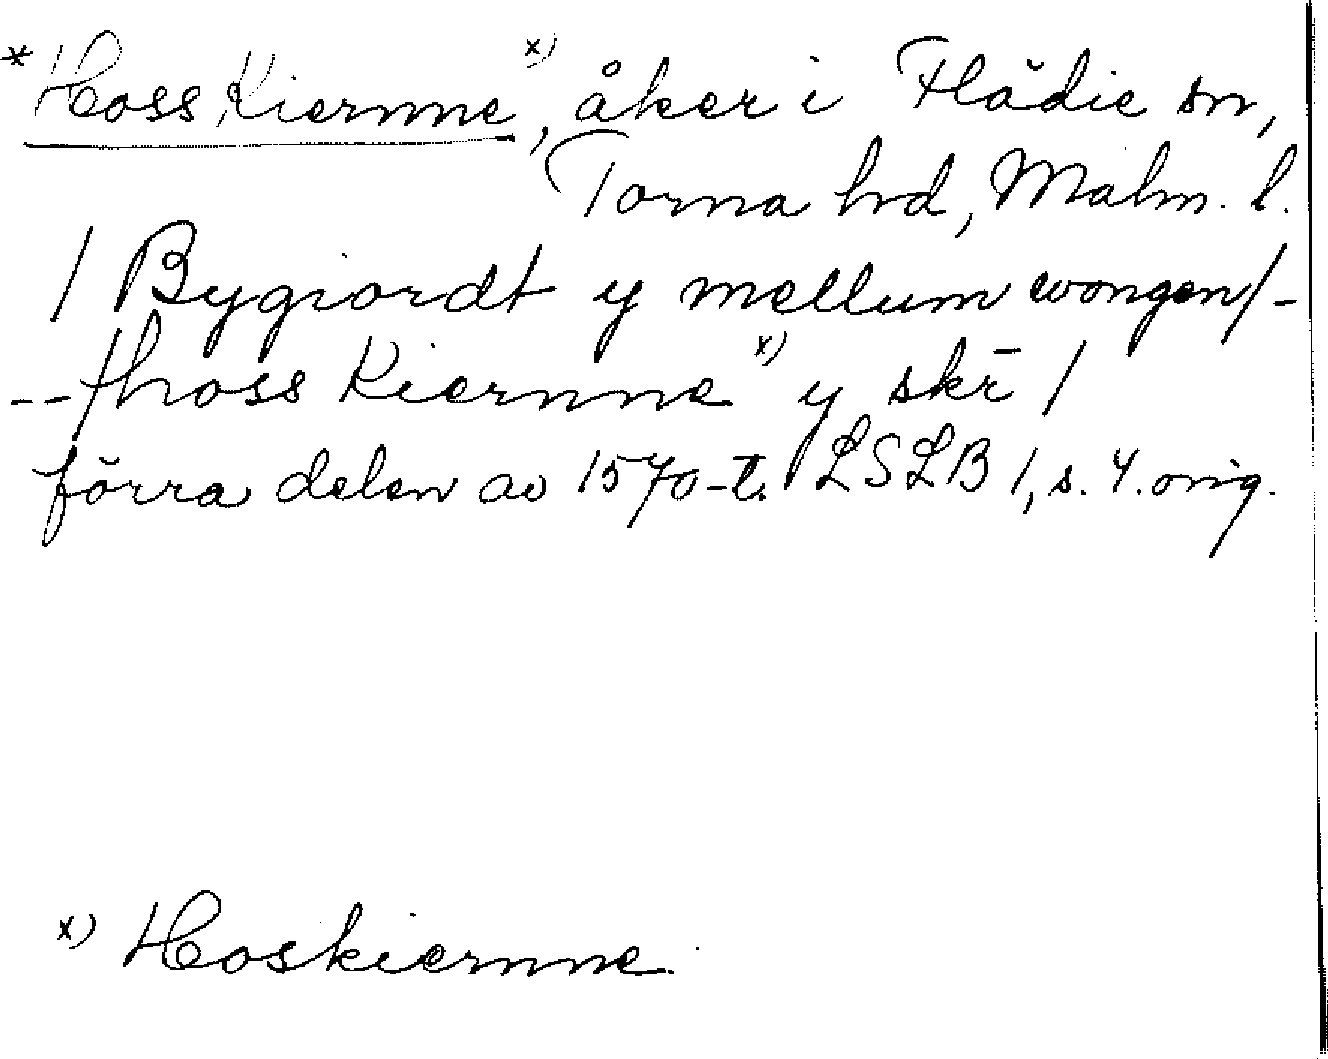 * Hoss Kiernne x), åker i Flädie sn,
Torna hd, Malm. l.
/ Bygiordt y mellum wongen/-
--/hoss Kiernne x) y skr̄ /
förra delen av 1570-t. LSLB 1, s. 4. orig.
x) Hoskiernne.